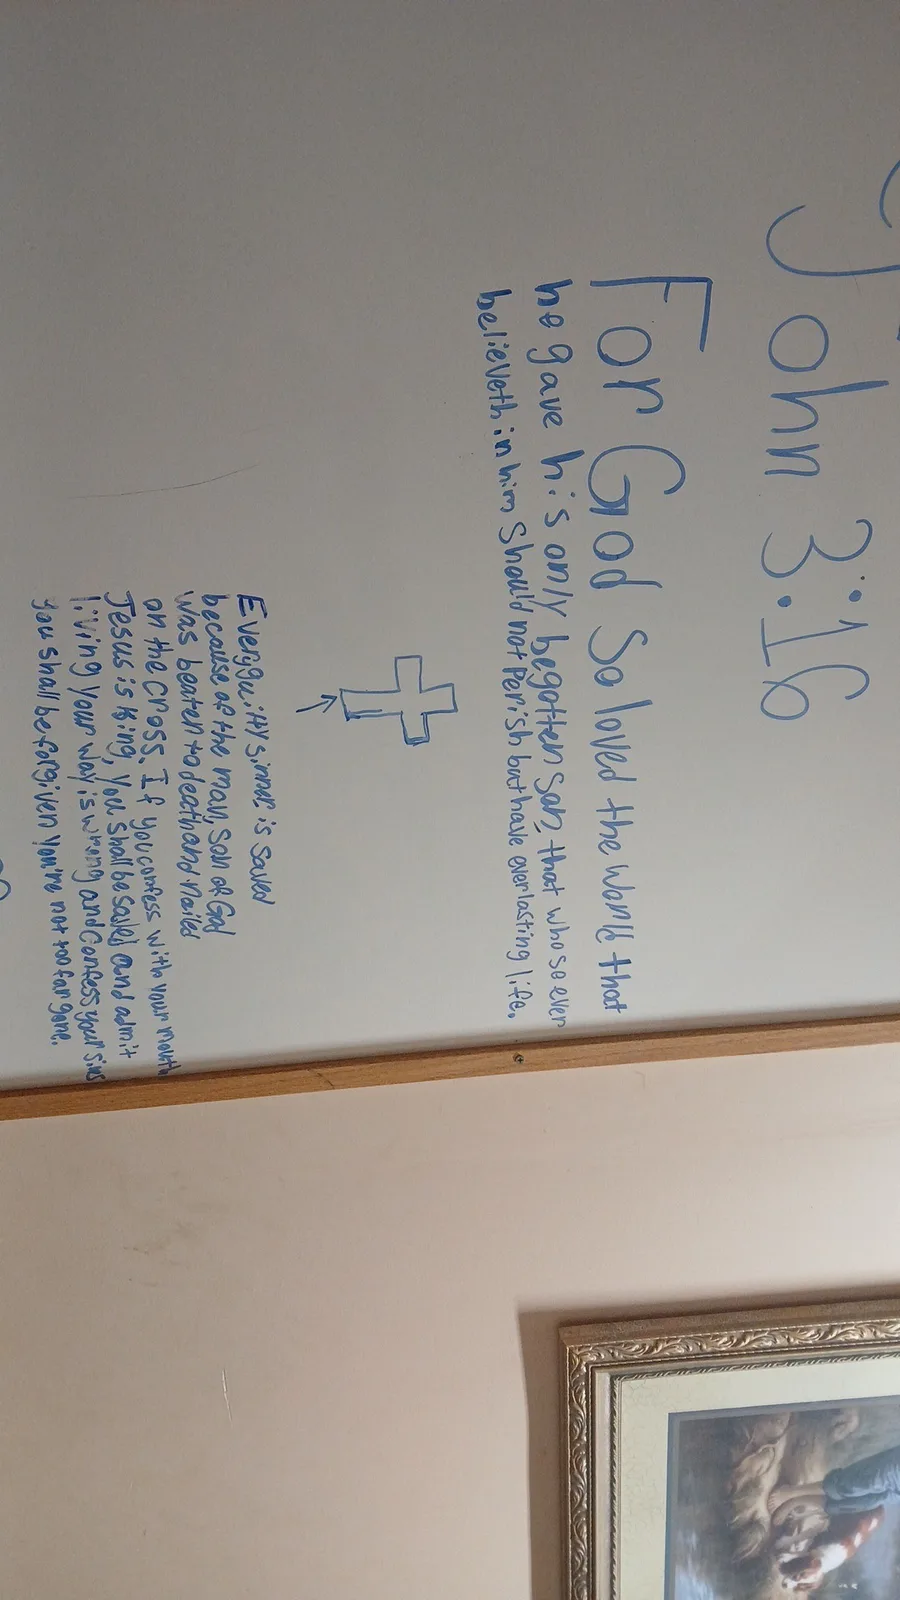 John 3:16
For God so loved the world that
he gave his only begotten son, that whosoever
believeth in him should not perish but have everlasting life.
Every guilty sinner is saved
because of the man, Son of God
was beaten to death and nailed
on the cross. If you confess with your mouth
Jesus is king, you shall be saved and admit
living your way is wrong and confess your sins
you shall be forgiven you're not too far gone.